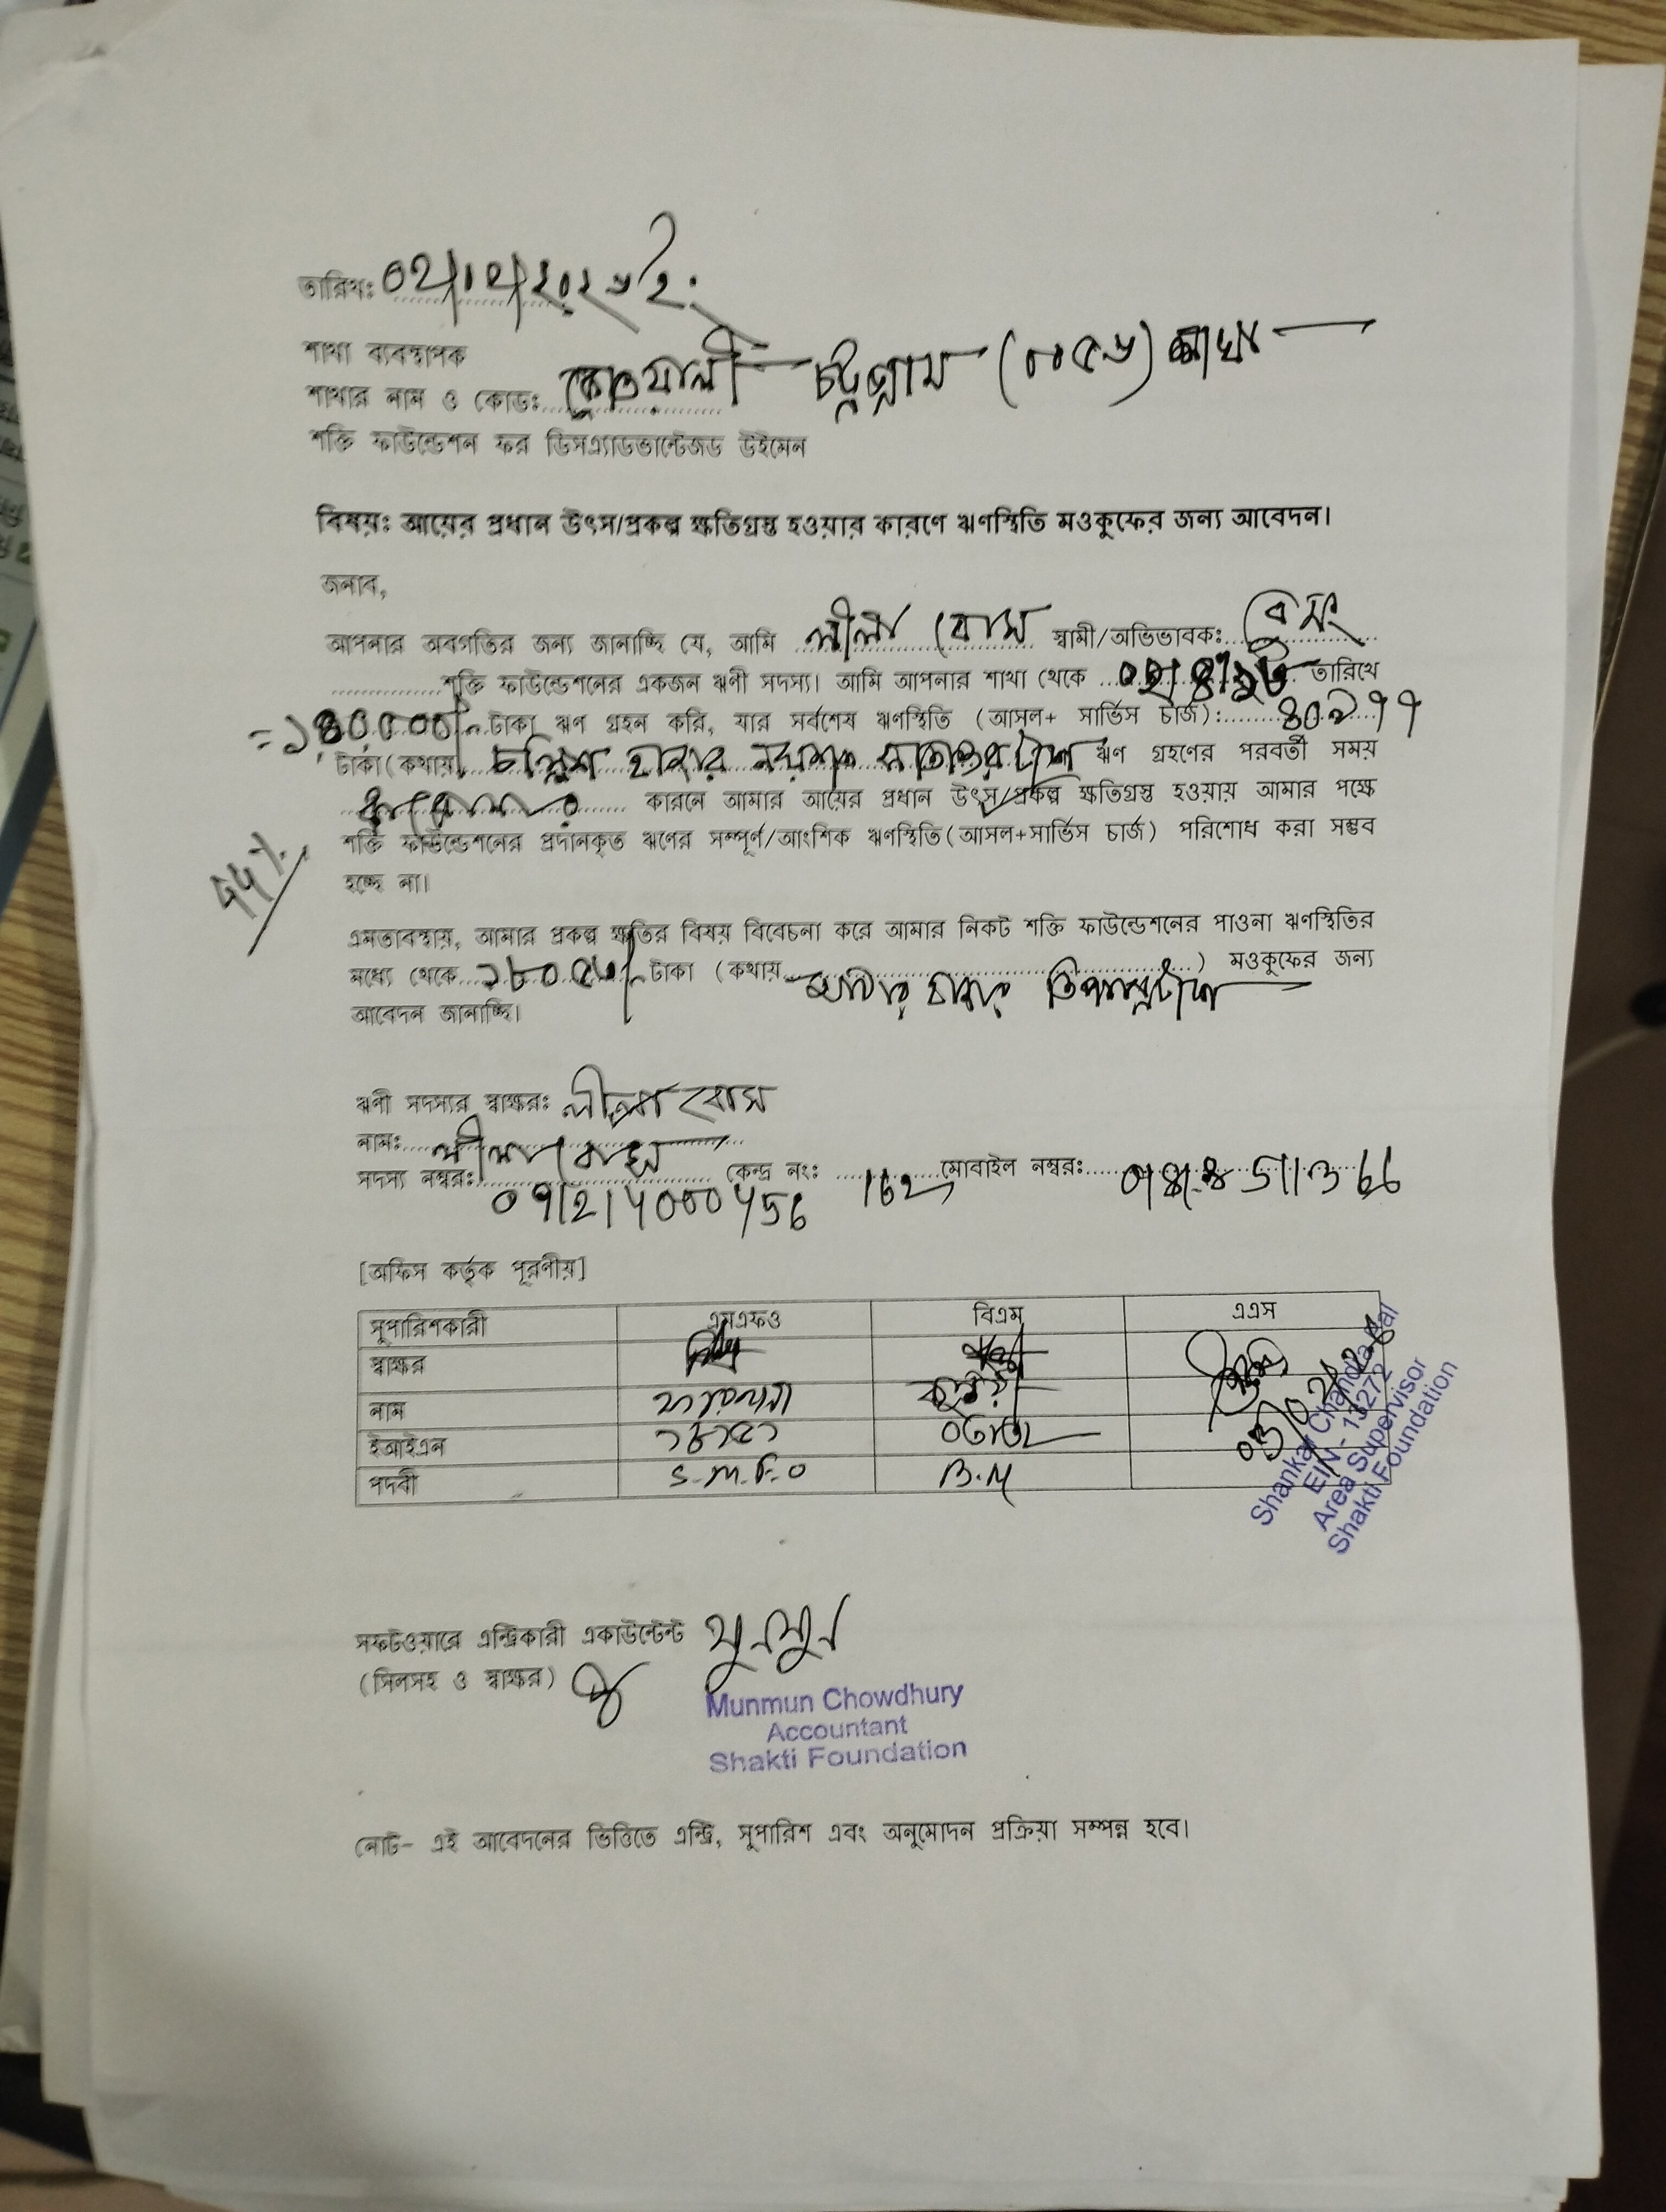 তারিখঃ ০২/০২/২০২৬ ইং
শাখা ব্যবস্থাপক
শাখার নাম ও কোডঃ কোতয়ালী চট্টগ্রাম (০০৫৬) শাখা
শক্তি ফাউন্ডেশন ফর ডিসএ্যাডভান্টেজড উইমেন
বিষয়ঃ আয়ের প্রধান উৎস/প্রকল্প ক্ষতিগ্রস্ত হওয়ার কারণে ঋণস্থিতি মওকুফের জন্য আবেদন।
জনাব,
আপনার অবগতির জন্য জানাচ্ছি যে, আমি লীলা বোস স্বামী/অভিভাবকঃ
শক্তি ফাউন্ডেশনের একজন ঋণী সদস্য। আমি আপনার শাখা থেকে তারিখে
=১৪০,০০০/= টাকা ঋণ গ্রহন করি, যার সর্বশেষ ঋণস্থিতি (আসল+ সার্ভিস চার্জ):৪০৯৭৭
টাকা(কথায় চল্লিশ হাজার নয়শত সাতাত্তর টাকা ঋণ গ্রহণের পরবর্তী সময়
কারনে আমার আয়ের প্রধান উৎস/প্রকল্প ক্ষতিগ্রস্ত হওয়ায় আমার পক্ষে
শক্তি ফাউন্ডেশনের প্রদানকৃত ঋণের সম্পূর্ণ/আংশিক ঋণস্থিতি(আসল+সার্ভিস চার্জ) পরিশোধ করা সম্ভব
হচ্ছে না।
এমতাবস্থায়, আমার প্রকল্প ক্ষতির বিষয় বিবেচনা করে আমার নিকট শক্তি ফাউন্ডেশনের পাওনা ঋণস্থিতির
মধ্যে থেকে টাকা (কথায় হাজার তিপান্ন টাকা ) মওকুফের জন্য
আবেদন জানাচ্ছি।
ঋণী সদস্যর স্বাক্ষরঃ লীলা বোস
নামঃ লীলা বোস
সদস্য নম্বরঃ কেন্দ্র নংঃ 162 মোবাইল নম্বরঃ
[অফিস কর্তৃক পূরণীয়]
সুপারিশকারী এমএফও বিএম এএস
স্বাক্ষর
নাম ফারজানা
ইআইএন
পদবী S.M.F.O B.M
Shankar Chandra Pal
EIN - 13272
Area Supervisor
Shakti Foundation
সফটওয়ারে এন্ট্রিকারী একাউন্টেন্ট মুনমুন
(সিলসহ ও স্বাক্ষর)
Munmun Chowdhury
Accountant
Shakti Foundation
নোট- এই আবেদনের ভিত্তিতে এন্ট্রি, সুপারিশ এবং অনুমোদন প্রক্রিয়া সম্পন্ন হবে।